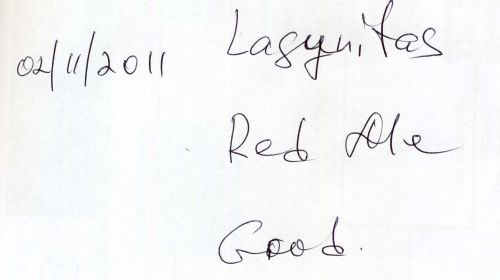 02/11/2011 Lagynitas
Red Ale
Good.